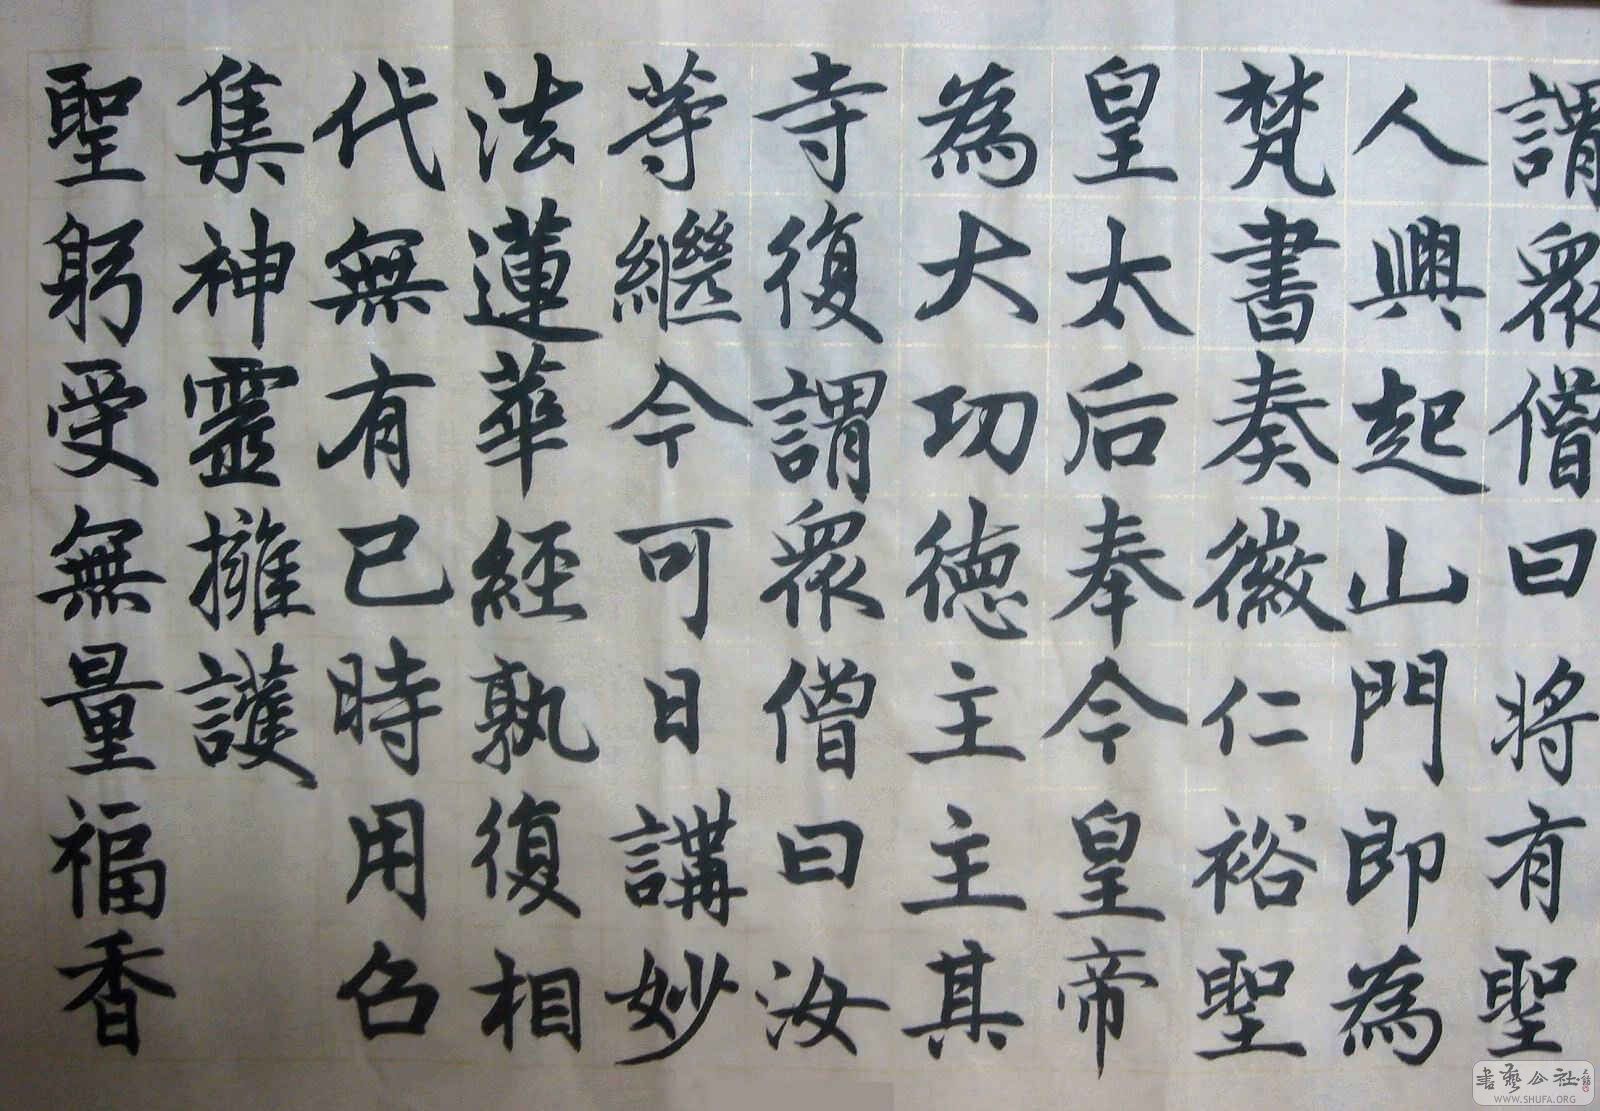 謂衆僧曰將有聖
人興起山門即為
梵書奏徽仁裕聖
皇太后奉今皇帝
為大功德主主其
寺復謂衆僧曰汝
等繼今可日講妙
法蓮華經孰復相
代無有已時用召
集神靈擁護
聖躬受無量福香
書藝公社
WWW.SHUFA.ORG